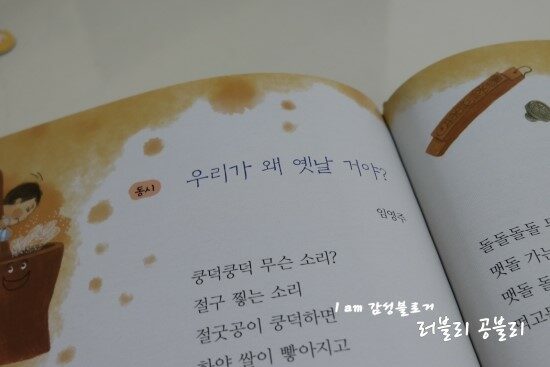 동시
우리가 왜 옛날 거야?
임영주
쿵덕쿵덕 무슨 소리?
절구 찧는 소리
절굿공이 쿵덕하면
하얀 쌀이 빻아지고
돌돌돌돌
맷돌 가는
맷돌 돌
I am 감성블로거
러블리 공블리